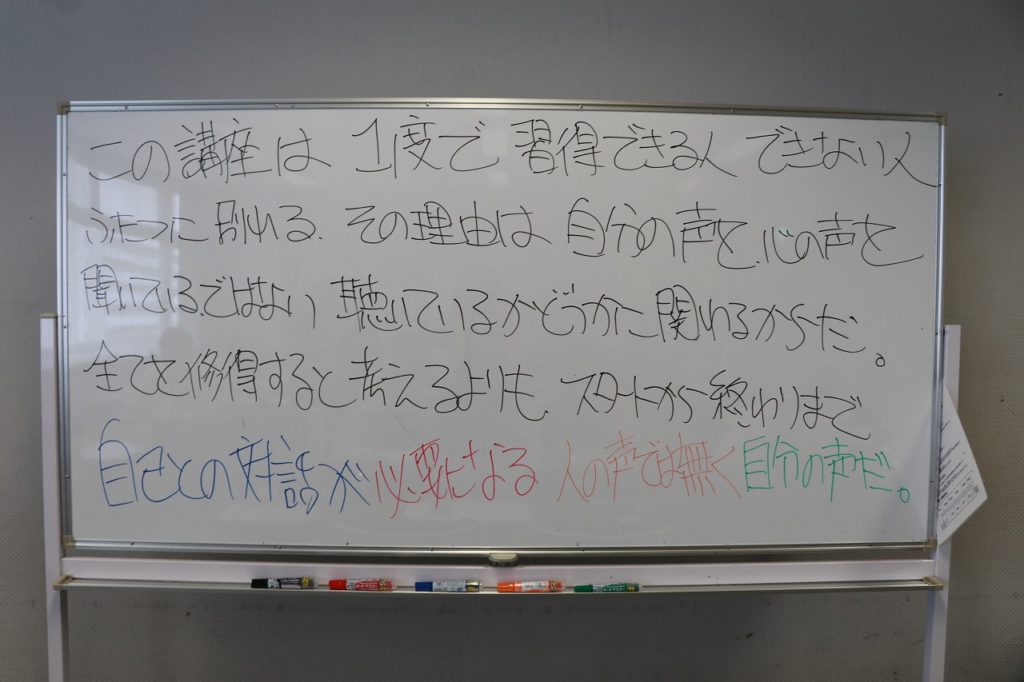 この講座は 1度で 習得できる人 できない人
ふたつに 別れる. その理由は 自分の声を、心の声を
聞いているではない, 聴いているかどうかに 関わるからだ。
全てを修得すると 考えるよりも、スタートから 終わりまで
自己との対話が必要になる 人の声では無く 自分の声だ。